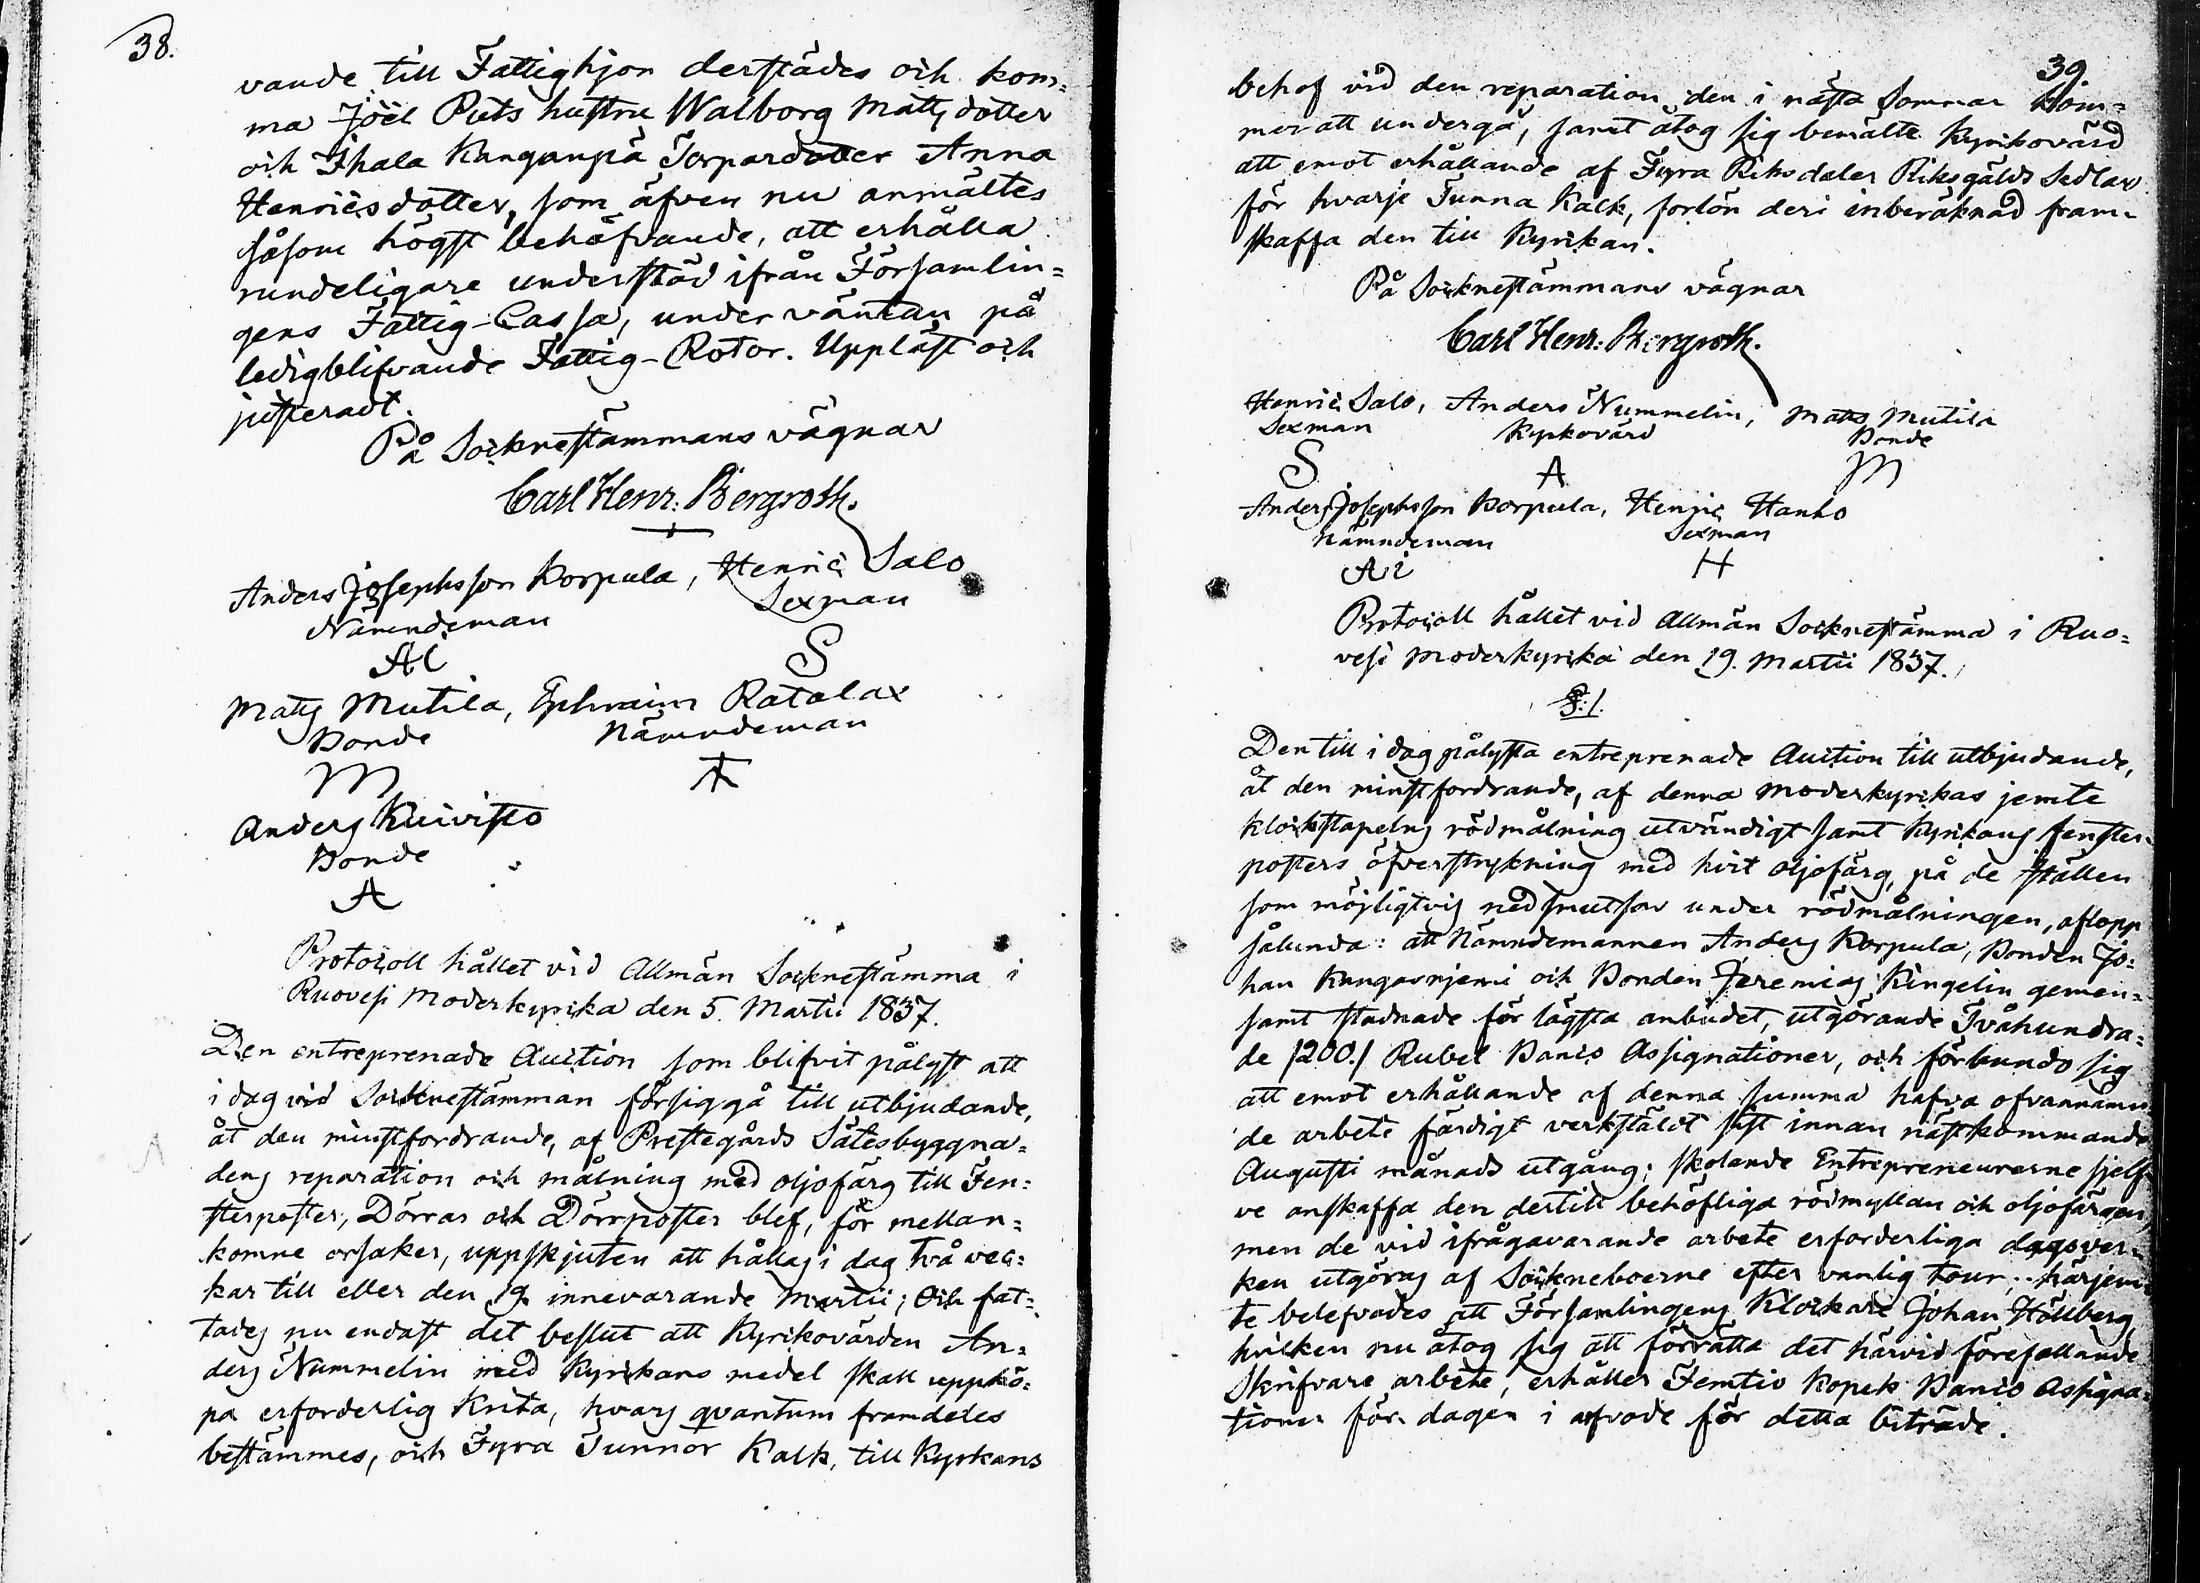 38.
vande till Fattighjon derstädes och kom=
ma Joël Puts hustru Walborg Mattsdotter
och Ihala Kanganpä Torpardotter Anna
Henricsdotter, som äfven nu anmältes
såsom högst behöfvande, att erhålla
rundeligare understöd ifrån Församlin=
gens Fattig-Cassa, under väntan på
ledigblifvande Fattig-Rotor. Uppläst och
justeradt.
På Sockne­stämmans vägnar
Carl Henr: Bergroth.
Anders Josephsson Korpula, Henric Salo
Nämndeman Sexman
AI S
Matts Mutila, Ephraim Ratalax
Bonde Nämndeman
M
Anders Kuivisto
Bonde
A
Protocoll hållet vid Allmän Socknestämma i
Ruovesi Moderkyrika den 5. Martii 1837.
Den entreprenade Auction som blifvit pålyst att
i dag vid Socknestämman försiggå till utbjudande,
åt den minstfordrande, af Prestegårds Sätesbyggna=
dens reparation och målning med oljofärg till Fen=
sterposter, Dörrar och Dörrposter blef, för mellan=
komne orsaker, uppskjuten att hållas i dag två vec=
kar till eller den 19. innevarande Martii; Och fat=
tades nu endast det beslut att Kyrikovärden An=
ders Nummelin med Kyrikans medel skall uppkö=
pa erforderlig Krita, hvars qvantum framdeles
bestämmes, och Fyra Tunnor Kalk, till Kyrkans
39.
behof vid den reparation den i nästa Sommar kom=
mer att undergå, samt åtog sig bemälte Kyrikovärd
att emot erhållande af Fyra Riksdaler Riksgälds Sedlar
för hvarje Tunna Kalk, forlön deri inberäknad fram=
skaffa den till Kyrikan.
På Socknestämmans vägnar
Carl Henr: Bergroth.
Henric Salo, Anders Nummelin, Matts Mutila
Sexman Kyrkovärd Bonde
S A M
Anders Josephsson Korpula, Henric Hanho
Nämndeman Sexman
AI H
Protocoll hållet vid Allmän Socknestämma i Ruo=
vesi Moderkyrika den 19. Martii 1837.
§. 1.
Den till i dag pålysta entreprenade Auction till utbjudande,
åt den minstfordrande, af denna Moderkyrikas jemte
klockstapelns rödmålning utvändigt samt Kyrikans fenster=
posters öfverstrykning med hvit oljofärg, på de ställen
som möjligtvis nedsmutsas under rödmålningen, aflopp
sålunda: att Nämndemannen Anders Korpula, Bonden Jo=
han Kangasnjemi och Bonden Jeremias Ringelin gemen=
samt stadnade för lägsta anbudet, utgörande Tvåhundra=
de /200./ Rubel Banco Assignationer, och förbundo sig
att emot erhållande af denna summa hafva ofvannämn=
de arbete färdigt verkstäldt sist innan nästkommande
Augusti månads utgång; skolande Entrepreneurerne sjelf=
ve anskaffa den dertill behöfliga rödmyllan och oljofärgen,
men de vid ifrågavarande arbete erforderliga dagsver=
ken utgöras af Sockneboerne efter vanlig tour; härjem=
te belefvades att Församlingens Klockare Johan Hällberg,
hvilken nu åtog sig att förrätta det härvid förefallande
Skrifvare arbete, erhåller Femtio Kopek Banco Assigna=
tioner för dagen i arfvode för detta biträde.